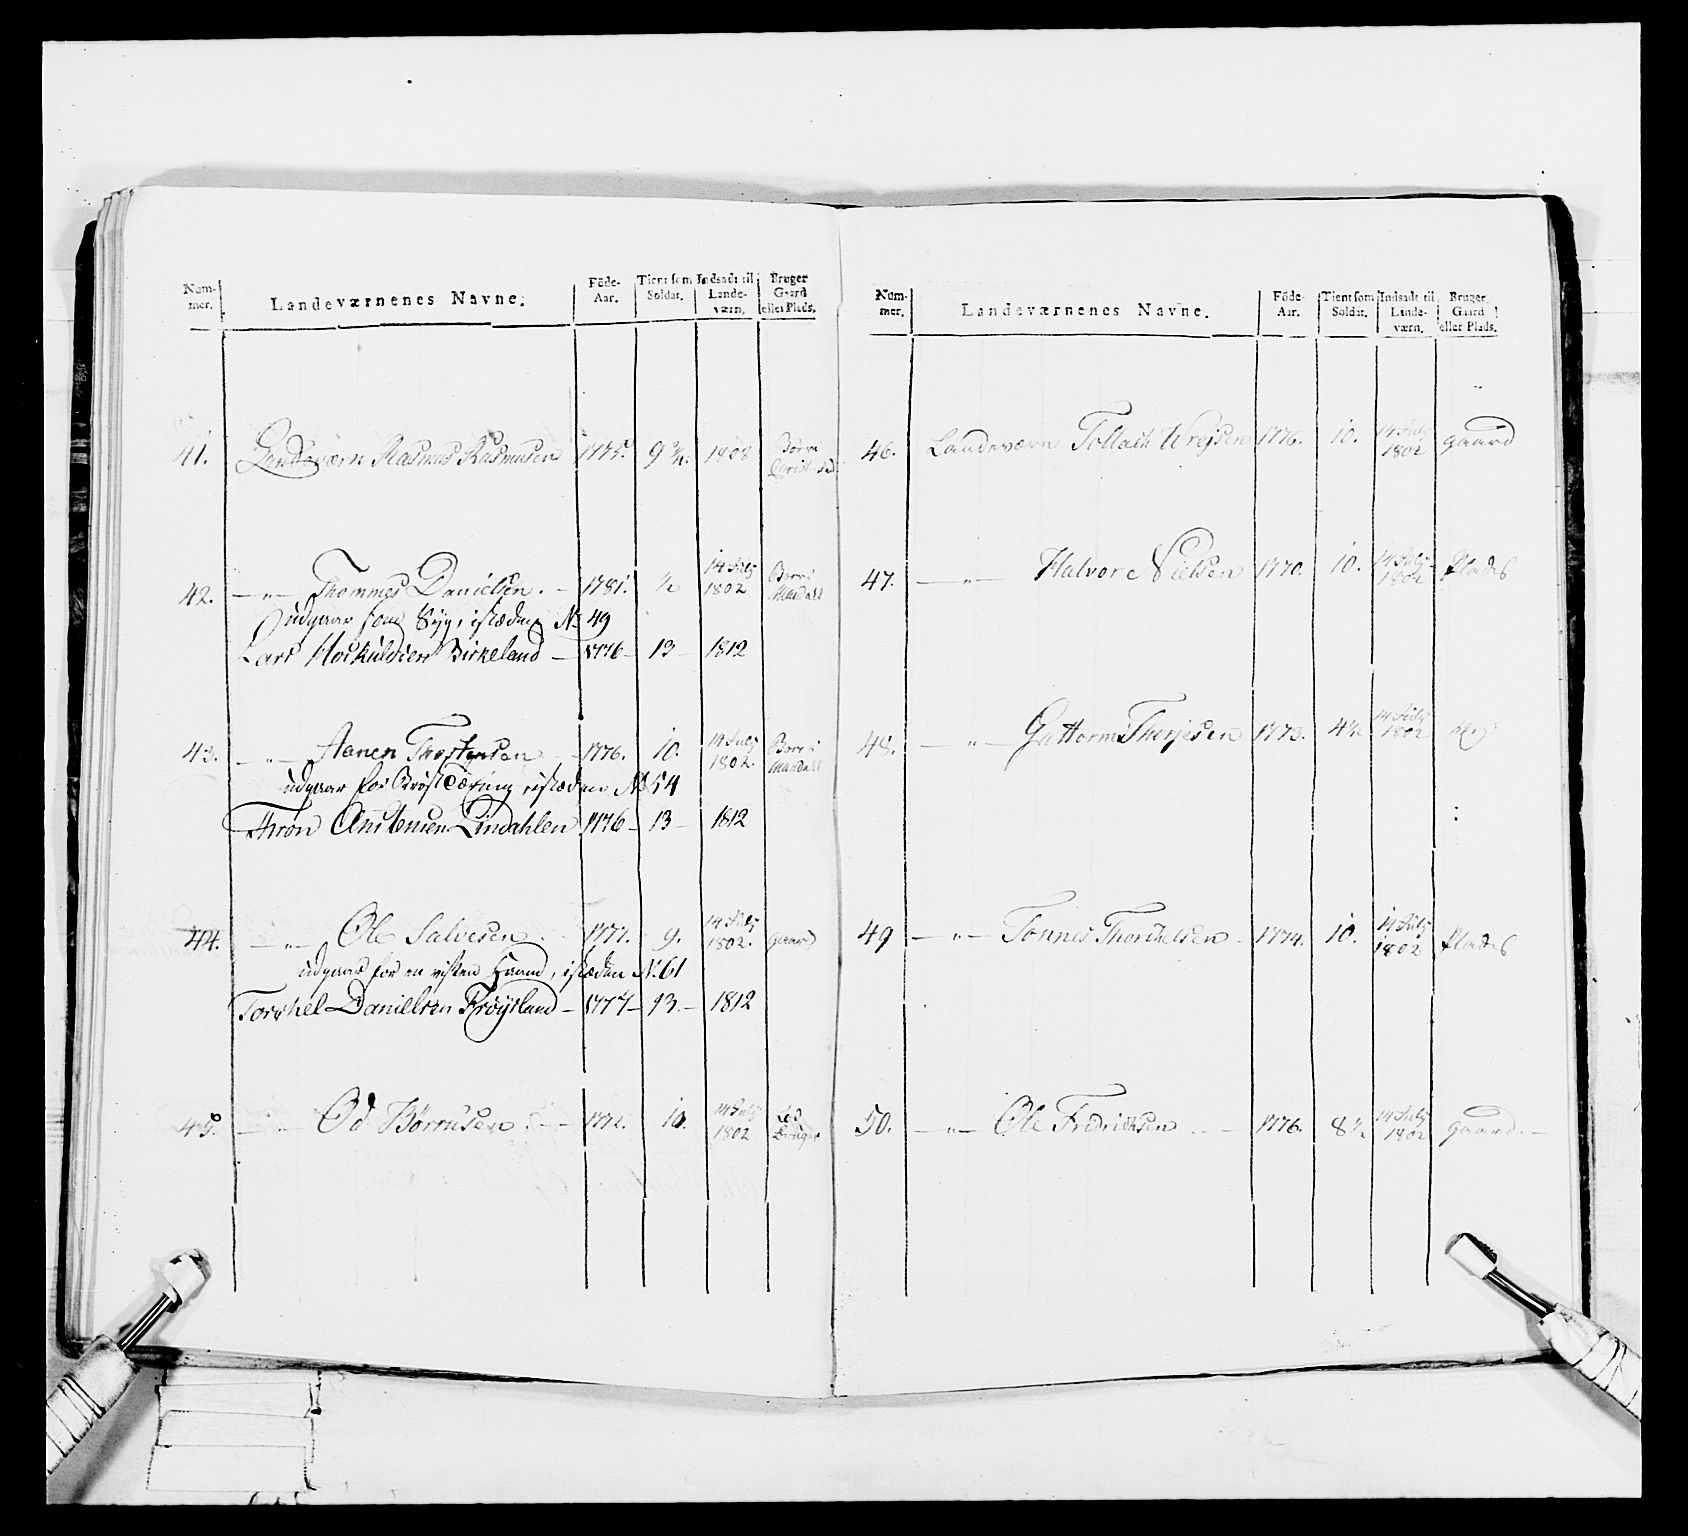 Num-
mer.
Landeværnenes Navne.
Föde-
Aar.
Tient som
Soldat.
Indsadt til
Lande-
værn.
Bruger
Gaard
eller Plads.
41. Landeværn Rasmus Rasmusen 1775. 9 ¾. 1808
42. — „ — Thommes Danielsen. — 1781. ½ 14 July 1802
udgaar som Syg, istæden No 49
Lars Hoskuldsen Birkeland — 1776 — 13 — 1812
43. — „ — Aanen Thostensen 1776. 10. 14 July 1802.
udgaar for Brøst istæden No 54
Thron Anstensen Lindahlen 1776 — 13 — 1812
44. — „ — Ole Salvesen 1771. 9. 14 July 1802. gaard
udgaar for en visten Haand, istæden No 61
Torkel Danielsen Frøysland — 1774 — 13 — 1812
45. — „ — Od Börrusen 1772. 10. 14 July 1802
Num-
mer.
Landeværnenes Navne.
Föde-
Aar.
Tient som
Soldat.
Indsadt til
Lande-
værn.
Bruger
Gaard
eller Plads.
46. Landeværn Tollach 1776. 10. 14 July 1802 gaard
47. — „ — Halvor Nielsen 1770. 10. 14 July 1802 Plads
48. — „ — Guttorm Therjesen 1773. 4½ 14 July 1802
49 — „ — Tønnes Thorchelsen 1774. 10. 14 July 1802 Plads
50. — „ — Ole Fredrichsen 1776. 8½ 14 July 1802 gaard. —